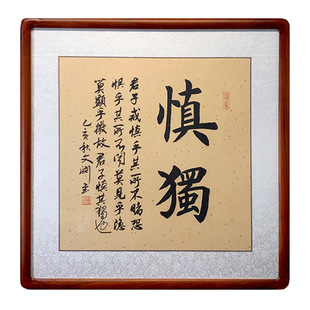 慎獨
君子戒慎乎其所不睹恐
惧乎其所不闻莫見乎隐
莫顯乎微故君子慎其獨也
己亥秋文渊書